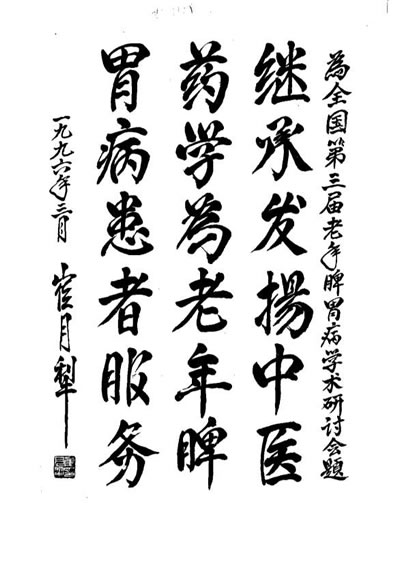 為全国第三届老年脾胃病学术研讨会題
继承发揚中医
药学為老年脾
胃病患者服务
一九九六年三月
崔月犁